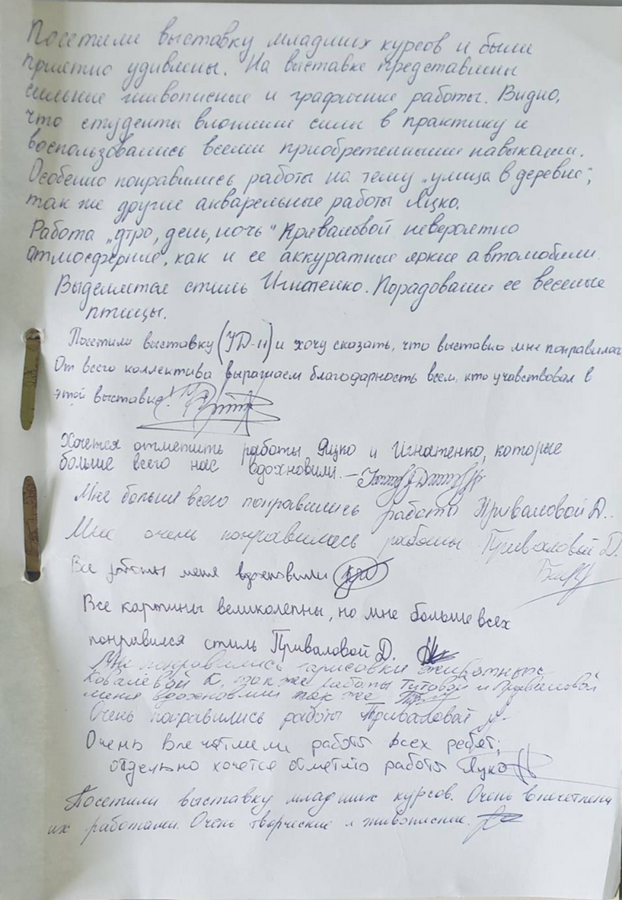 Посетили выставку младших курсов и были
приятно удивлены. На выставке представлены
сильные живописные и графичные работы. Видно,
что студенты вложили силы в практику и
воспользовались всеми приобретенными навыками.
Особенно понравились работы на тему „улица в деревне",
так же другие акварельные работы Яцко.
Работа „утро, день, ночь" Приваловой невероятно
атмосферные, как и ее аккуратные яркие автомобили.
Выделяется стиль Игнатенко. Порадовали ее веселые
птицы.
Посетила выставку (УД-11) и хочу сказать, что выставка мне понравилась
От всего коллектива выражаем благодарность всем, кто учавствовал в
этой выставке!
Хочется отметить работы Яцко и Игнатенко, которые
больше всего нас вдохновили. –
Мне больше всего понравились работы Приваловой Д.
Мне очень понравились работы Приваловой Д.
Все работы меня вдохновили
Все картины великолепны, но мне больше всех
понравился стиль Приваловой Д.
Мне понравились зарисовки животных
Ковалевой К, так же работы Титовой и Приваловой
меня вдохновили так же
Очень понравились работы Приваловой
Очень впечатлили работы всех ребят;
отдельно хочется отметить работы Яцко
Посетили выставку младших курсов. Очень впечатлены
их работами. Очень творческие и живописные.